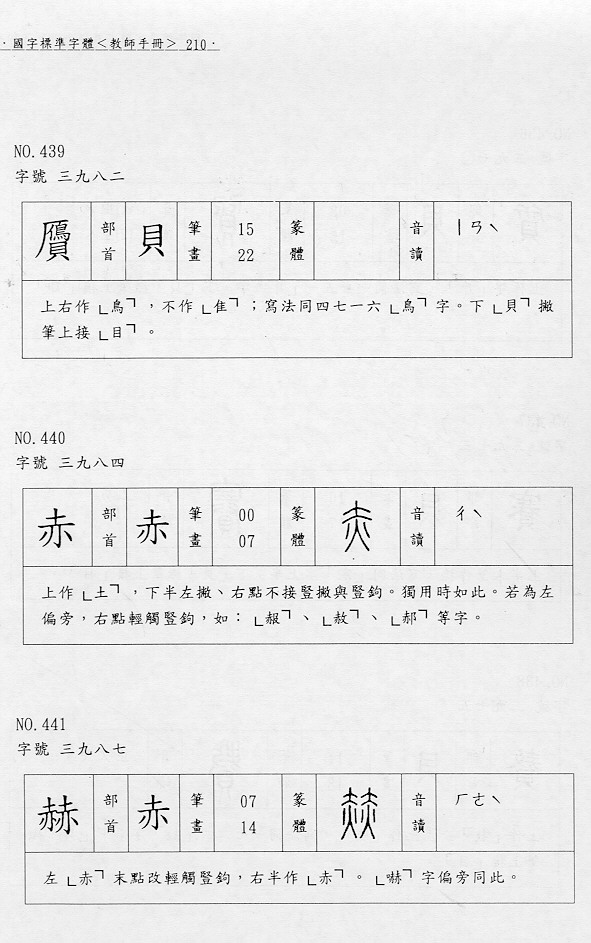 ·國字標準字體<教師手冊> 210·
NO.439
字號 三九八二
贗 部首 貝 筆畫 15 22 篆體 音讀 ㄧㄢˋ
上右作「鳥」,不作「隹」;寫法同四七一六「鳥」字。下「貝」撇
筆上接「目」。
NO.440
字號 三九八四
赤 部首 赤 筆畫 00 07 篆體 赤 音讀 ㄔˋ
上作「土」,下半左撇、右點不接豎撇與豎鉤。獨用時如此。若為左
偏旁,右點輕觸豎鉤,如:「赧」、「赦」、「郝」等字。
NO.441
字號 三九八七
赫 部首 赤 筆畫 07 14 篆體 赫 音讀 ㄏㄜˋ
左「赤」末點改輕觸豎鉤,右半作「赤」。「嚇」字偏旁同此。